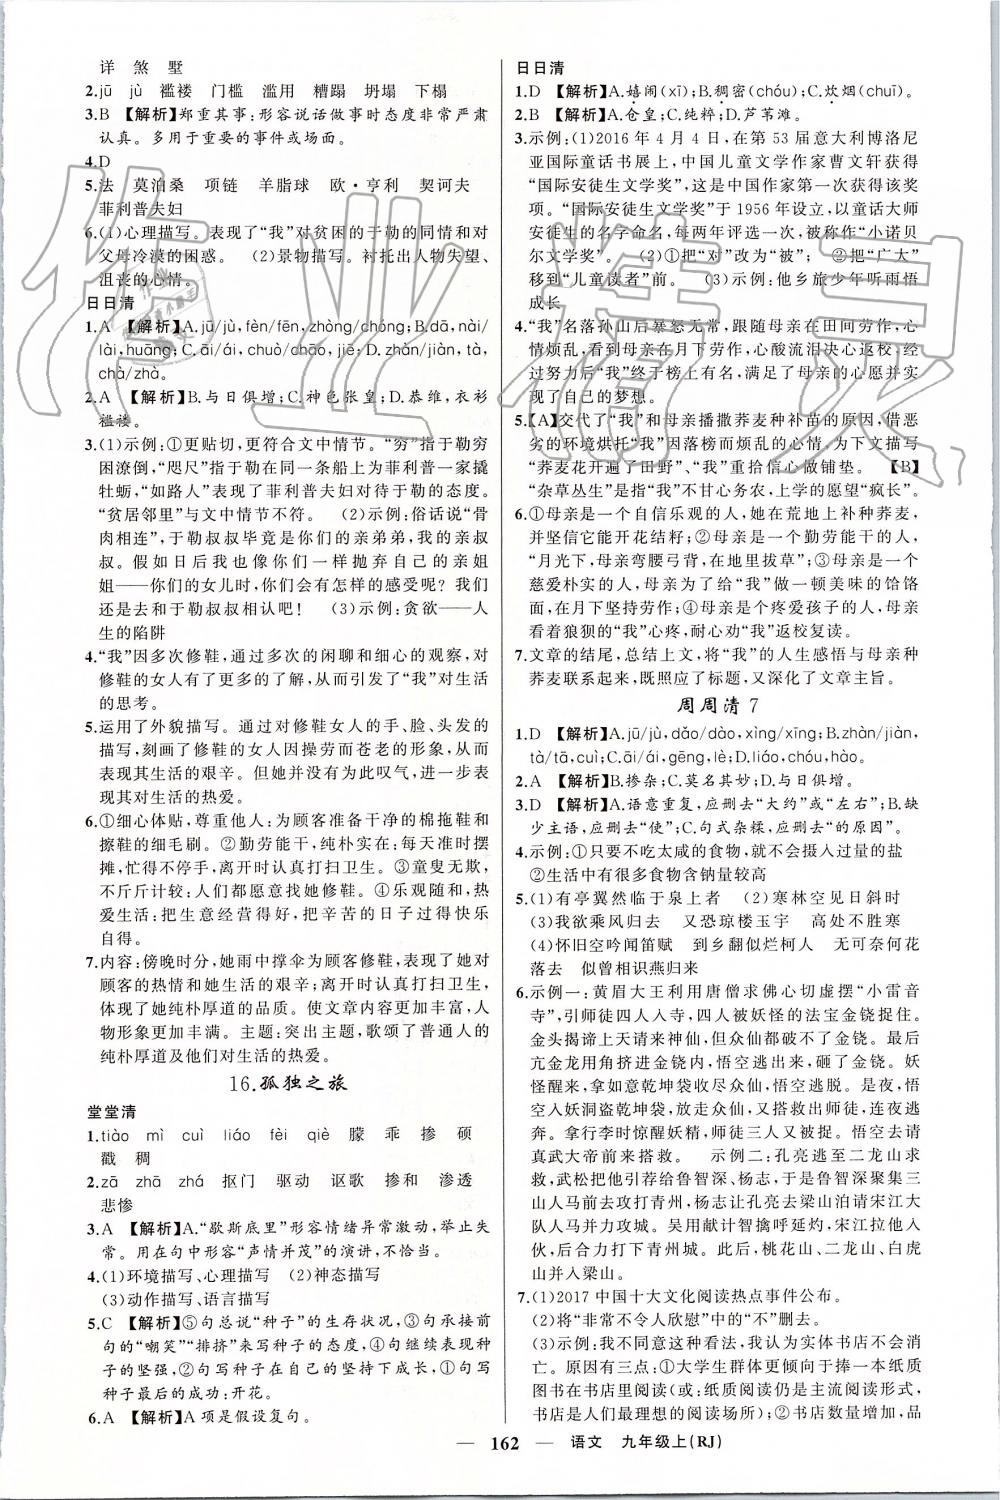 详　煞　墅
2.jū　jù　褴褛　门槛　滥用　糟蹋　坍塌　下榻
3.B　【解析】郑重其事:形容说话做事时态度非常严肃
认真。多用于重要的事件或场面。
4.D
5.法　莫泊桑　项链　羊脂球　欧·亨利　契诃夫
菲利普夫妇
6.(1)心理描写。表现了“我”对贫困的于勒的同情和对
父母冷漠的困惑。　(2)景物描写。衬托出人物失望、
沮丧的心情。
日日清
1.A　【解析】A.jū/jù,fèn/fēn,zhòng/chóng;B.dā,nài/
lài,huāng;C.āi/ái,chuò/chāo,jiē;D.zhàn/jàn,tà,
chà/zhà。
2.A　【解析】B.与日俱增;C.神色张皇;D.恭维,衣衫
褴褛。
3.(1)示例:①更贴切,更符合文中情节。“穷”指于勒穷
困潦倒,“咫尺”指于勒在同一条船上为菲利普一家撬
牡蛎,“如路人”表现了菲利普夫妇对待于勒的态度。
“贫居邻里”与文中情节不符。　(2)示例:俗话说“骨
肉相连”,于勒叔叔毕竟是你们的亲弟弟,我的亲叔
叔。假如日后我也像你们一样抛弃自己的亲姐
姐——你们的女儿时,你们会有怎样的感受呢?我们
还是去和于勒叔叔相认吧!　(3)示例:贪欲——人
生的陷阱
4.“我”因多次修鞋,通过多次的闲聊和细心的观察,对
修鞋的女人有了更多的了解,从而引发了“我”对生活
的思考。
5.运用了外貌描写。通过对修鞋女人的手、脸、头发的
描写,刻画了修鞋的女人因操劳而苍老的形象,从而
表现其生活的艰辛。但她并不以此叹气,进一步表
现其对生活的热爱。
6.①细心体贴,尊重他人:为顾客准备干净的棉拖鞋和
擦鞋的细毛刷。②勤劳能干,纯朴实在:每天准时摆
摊,忙得不停手,离开时认真打扫卫生。③童叟无欺,
不斤斤计较:人们都愿意找她修鞋。④乐观随和,热
爱生活:把生意经营得好,把辛苦的日子过得快乐
自得。
7.内容:傍晚时分,她雨中撑伞为顾客修鞋,表现了她对
顾客的热情和她生活的艰辛;离开时认真打扫卫生,
体现了她纯朴厚道的品质。使文章内容更加丰富,人
物形象更加丰满。主题:突出主题,歌颂了普通人的
纯朴厚道及他们对生活的热爱。
16.孤独之旅
堂堂清
1.tiào　mì　cuì　liáo　fèi　qiè　朦　乖　掺　硕
戳　稠
2.zā　zhā　zhá　抠门　驱动　讴歌　掺和　渗透
悲惨
3.A　【解析】A.“歇斯底里”形容情绪异常激动,举止失
常。用在句中形容“声情并茂”的演讲,不恰当。
4.(1)环境描写、心理描写　(2)神态描写
(3)动作描写、语言描写
5.C　【解析】⑤句总说“种子”的生存状况,③句承前句
的“嘲笑”“排挤”来写种子的态度,④句继续表现种
子的坚强,②句写种子在自己的坚持下成长,①句写
种子最后的成功:开花。
6.A　【解析】A项是假设复句。
日日清
1.D　【解析】A.嬉闹(xī);B.稠密(chóu);C.炊烟(chuī)。
2.B　【解析】A.仓皇;C.纯粹;D.芦苇滩。
3.示例:(1)2016年4月4日,在第53届意大利博洛尼
亚国际童话书展上,中国儿童文学作家曹文轩获得
“国际安徒生文学奖”,这是中国作家第一次获得该奖
项。“国际安徒生文学奖”于1956年设立,以童话大师
安徒生的名字命名,每两年评选一次,被称作“小诺贝
尔文学奖”。　(2)①把“对”改为“被”;②把“广大”
移到“儿童读者”前。　(3)示例:他乡旅少年听雨悟
成长
4.“我”名落孙山后暴怒无常,跟随母亲在田间劳作,心
情烦乱,看到母亲在月下劳作,心酸流泪决心返校;经
过努力后“我”终于榜上有名,满足了母亲的心愿并实
现了自己的梦想。
5.【A】交代了“我”和母亲播撒荞麦种补苗的原因,借恶
劣的环境烘托“我”因落榜而烦乱的心情,为下文描写
“荞麦花开遍了田野”、“我”重拾信心做铺垫。【B】
“杂草丛生”是指“我”不甘心务农,上学的愿望“疯长”。
6.①母亲是一个自信乐观的人,她在荒地上补种荞麦,
并坚信它能开花结籽;②母亲是一个勤劳能干的人,
“月光下,母亲弯腰弓背,在地里拔草”;③母亲是一个
慈爱朴实的人,母亲为了给“我”做一顿美味的饸饹
面,在月下坚持劳作;④母亲是个疼爱孩子的人,母亲
看着狼狈的“我”心疼,耐心劝“我”返校复读。
7.文章的结尾,总结上文,将“我”的人生感悟与母亲种
荞麦联系起来,既照应了标题,又深化了文章主旨。
周周清7
1.D　【解析】A.jū/jù,dǎo/dào,xìng/xīng;B.zhàn/jiàn,
tà/tā,cuì;C.āi/ái,gēng,lè;D.liáo,chóu,hào。
2.A　【解析】B.掺杂;C.莫名其妙;D.与日俱增。
3.D　【解析】A.语意重复,应删去“大约”或“左右”;B.缺
少主语,应删去“使”;C.句式杂糅,应删去“的原因”。
4.示例:①只要不吃太咸的食物,就不会摄入过量的盐
②生活中有很多食物含钠量较高
5.(1)有亭翼然临于泉上者　(2)寒林空见日斜时
(3)我欲乘风归去　又恐琼楼玉宇　高处不胜寒
(4)怀旧空吟闻笛赋　到乡翻似烂柯人　无可奈何花
落去　似曾相识燕归来
6.示例一:黄眉大王利用唐僧求佛心切虚摆“小雷音
寺”,引得师徒四人入寺,四人被妖怪的法宝金铙捉住。
金头揭谛上天请来神仙,但众仙都破不了金铙。最后
亢金龙用角挤进金铙内,悟空逃出来,砸了金铙。妖
怪醒来,并以乾坤袋收了众仙,悟空逃脱。是夜,悟空
潜入妖洞盗乾坤袋,放走众仙,又救出师徒,收拾行李欲
奔。拿行李时惊醒妖精,师徒三人又被捉。悟空去请
真武大帝前来搭救。　示例二:孔亮逃至二龙山求
救,武松把他引荐给鲁智深、杨志,于是鲁智深聚集三
山人马前去攻打青州,杨志让孔亮去梁山泊请宋江大
队人马并力攻城。吴用献计智擒呼延灼,宋江拉他入
伙,后合力打下青州城。此后,桃花山、二龙山、白虎
山并入梁山。
7.(1)2017中国十大文化阅读热点事件公布。
(2)将“非常不令人欣慰”中的“不”删去。
(3)示例:我不同意这种看法,我认为实体书店不会消
亡。原因有三点:①大学生群体更倾向于捧一本纸质
图书在书店里阅读(或:纸质阅读仍是主流阅读形式,
书店是人们最理想的阅读场所);②书店数量增加,品
— 162 — 语文　九年级上(RJ)
作业精灵